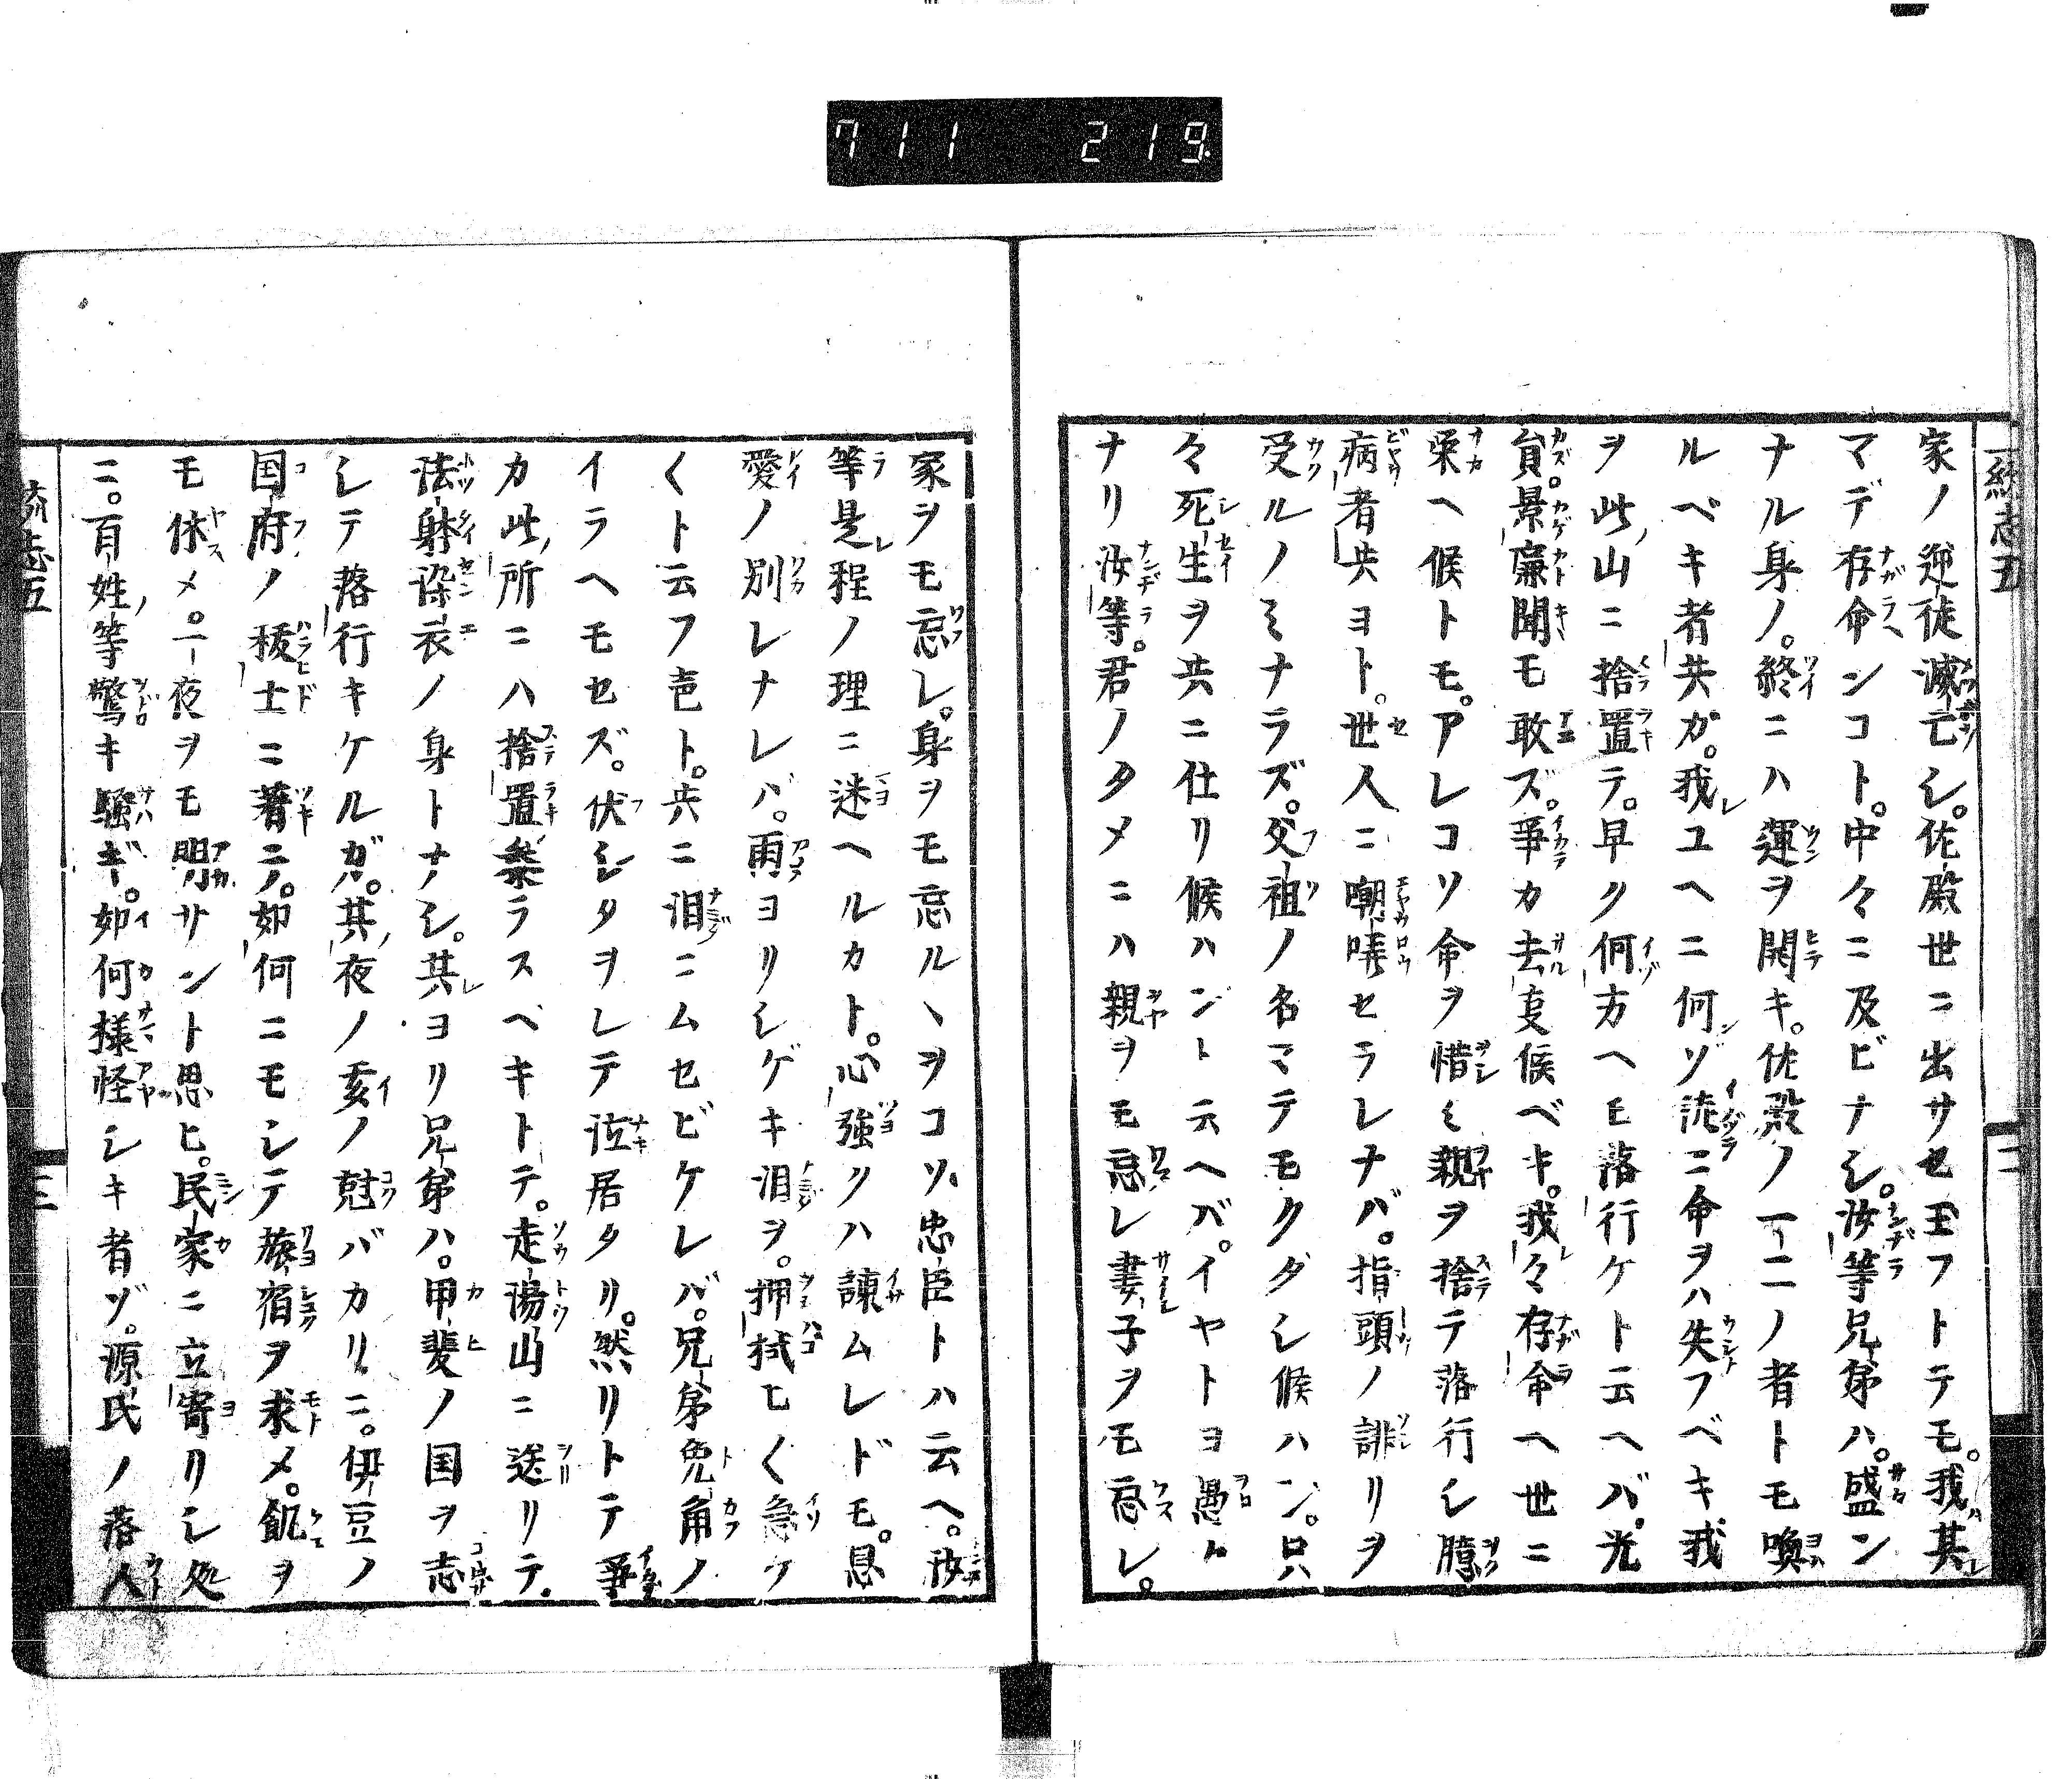 711 219.
家ノ逆徒滅亡シ。佐殿世ニ出サセ玉フトテモ。我其
マデ存命ンコト。中々ニ及ビナシ。汝等兄弟ハ。盛ン
ナル身ノ。終ニハ運ヲ開キ。佐殿ノ一二ノ者トモ喚
ルベキ者共ガ。我ユヘニ何ゾ徒ニ命ヲハ失フベキ我
ヲ此山ニ捨置テ。早ク何方ヘモ落行ケト云ヘバ。光
員。景廉聞モ敢ズ。爭カ去事候ベキ。我々存命ヘ世ニ
栄ヘ候トモ。アレコソ命ヲ惜ミ親ヲ捨テ落行シ臆
病者共ヨト。世人ニ嘲哢セラレナバ。指頭ノ誹リヲ
受ルノミナラズ。父祖ノ名マテモクダシ候ハン。只
々死生ヲ共ニ仕リ候ハント云ヘバ。イヤトヨ愚ケ
ナリ汝等。君ノタメニハ親ヲモ忘レ妻子ヲモ忘レ。
家ヲモ忘レ。身ヲモ忘ルヽヲコソ忠臣トハ云ヘ。汝
等是程ノ理ニ迷ヘルカト。心強クハ諫ムレドモ。恩
愛ノ別レナレバ。雨ヨリシゲキ泪ヲ。押拭ヒ〱急ケ
〱ト云フ声ト。共ニ泪ニムセビケレバ。兄弟兔角ノ
イラヘモセズ。伏シタヲレテ泣居タリ。然リトテ爭
カ此所ニハ捨置参ラスベキトテ。走湯山ニ送リテ。
法躰染衣ノ身トナシ。其ヨリ兄弟ハ。甲斐ノ国ヲ志
シテ落行キケルガ。其夜ノ亥ノ尅バカリニ。伊豆ノ
国府ノ祓士ニ著ニケ。如何ニモシテ旅宿ヲ求メ。飢ヲ
モ休メ。一夜ヲモ明サント思ヒ。民家ニ立寄リシ処
ニ。百姓等驚キ騒ギ。如何様怪シキ者ゾ。源氏ノ落人
三